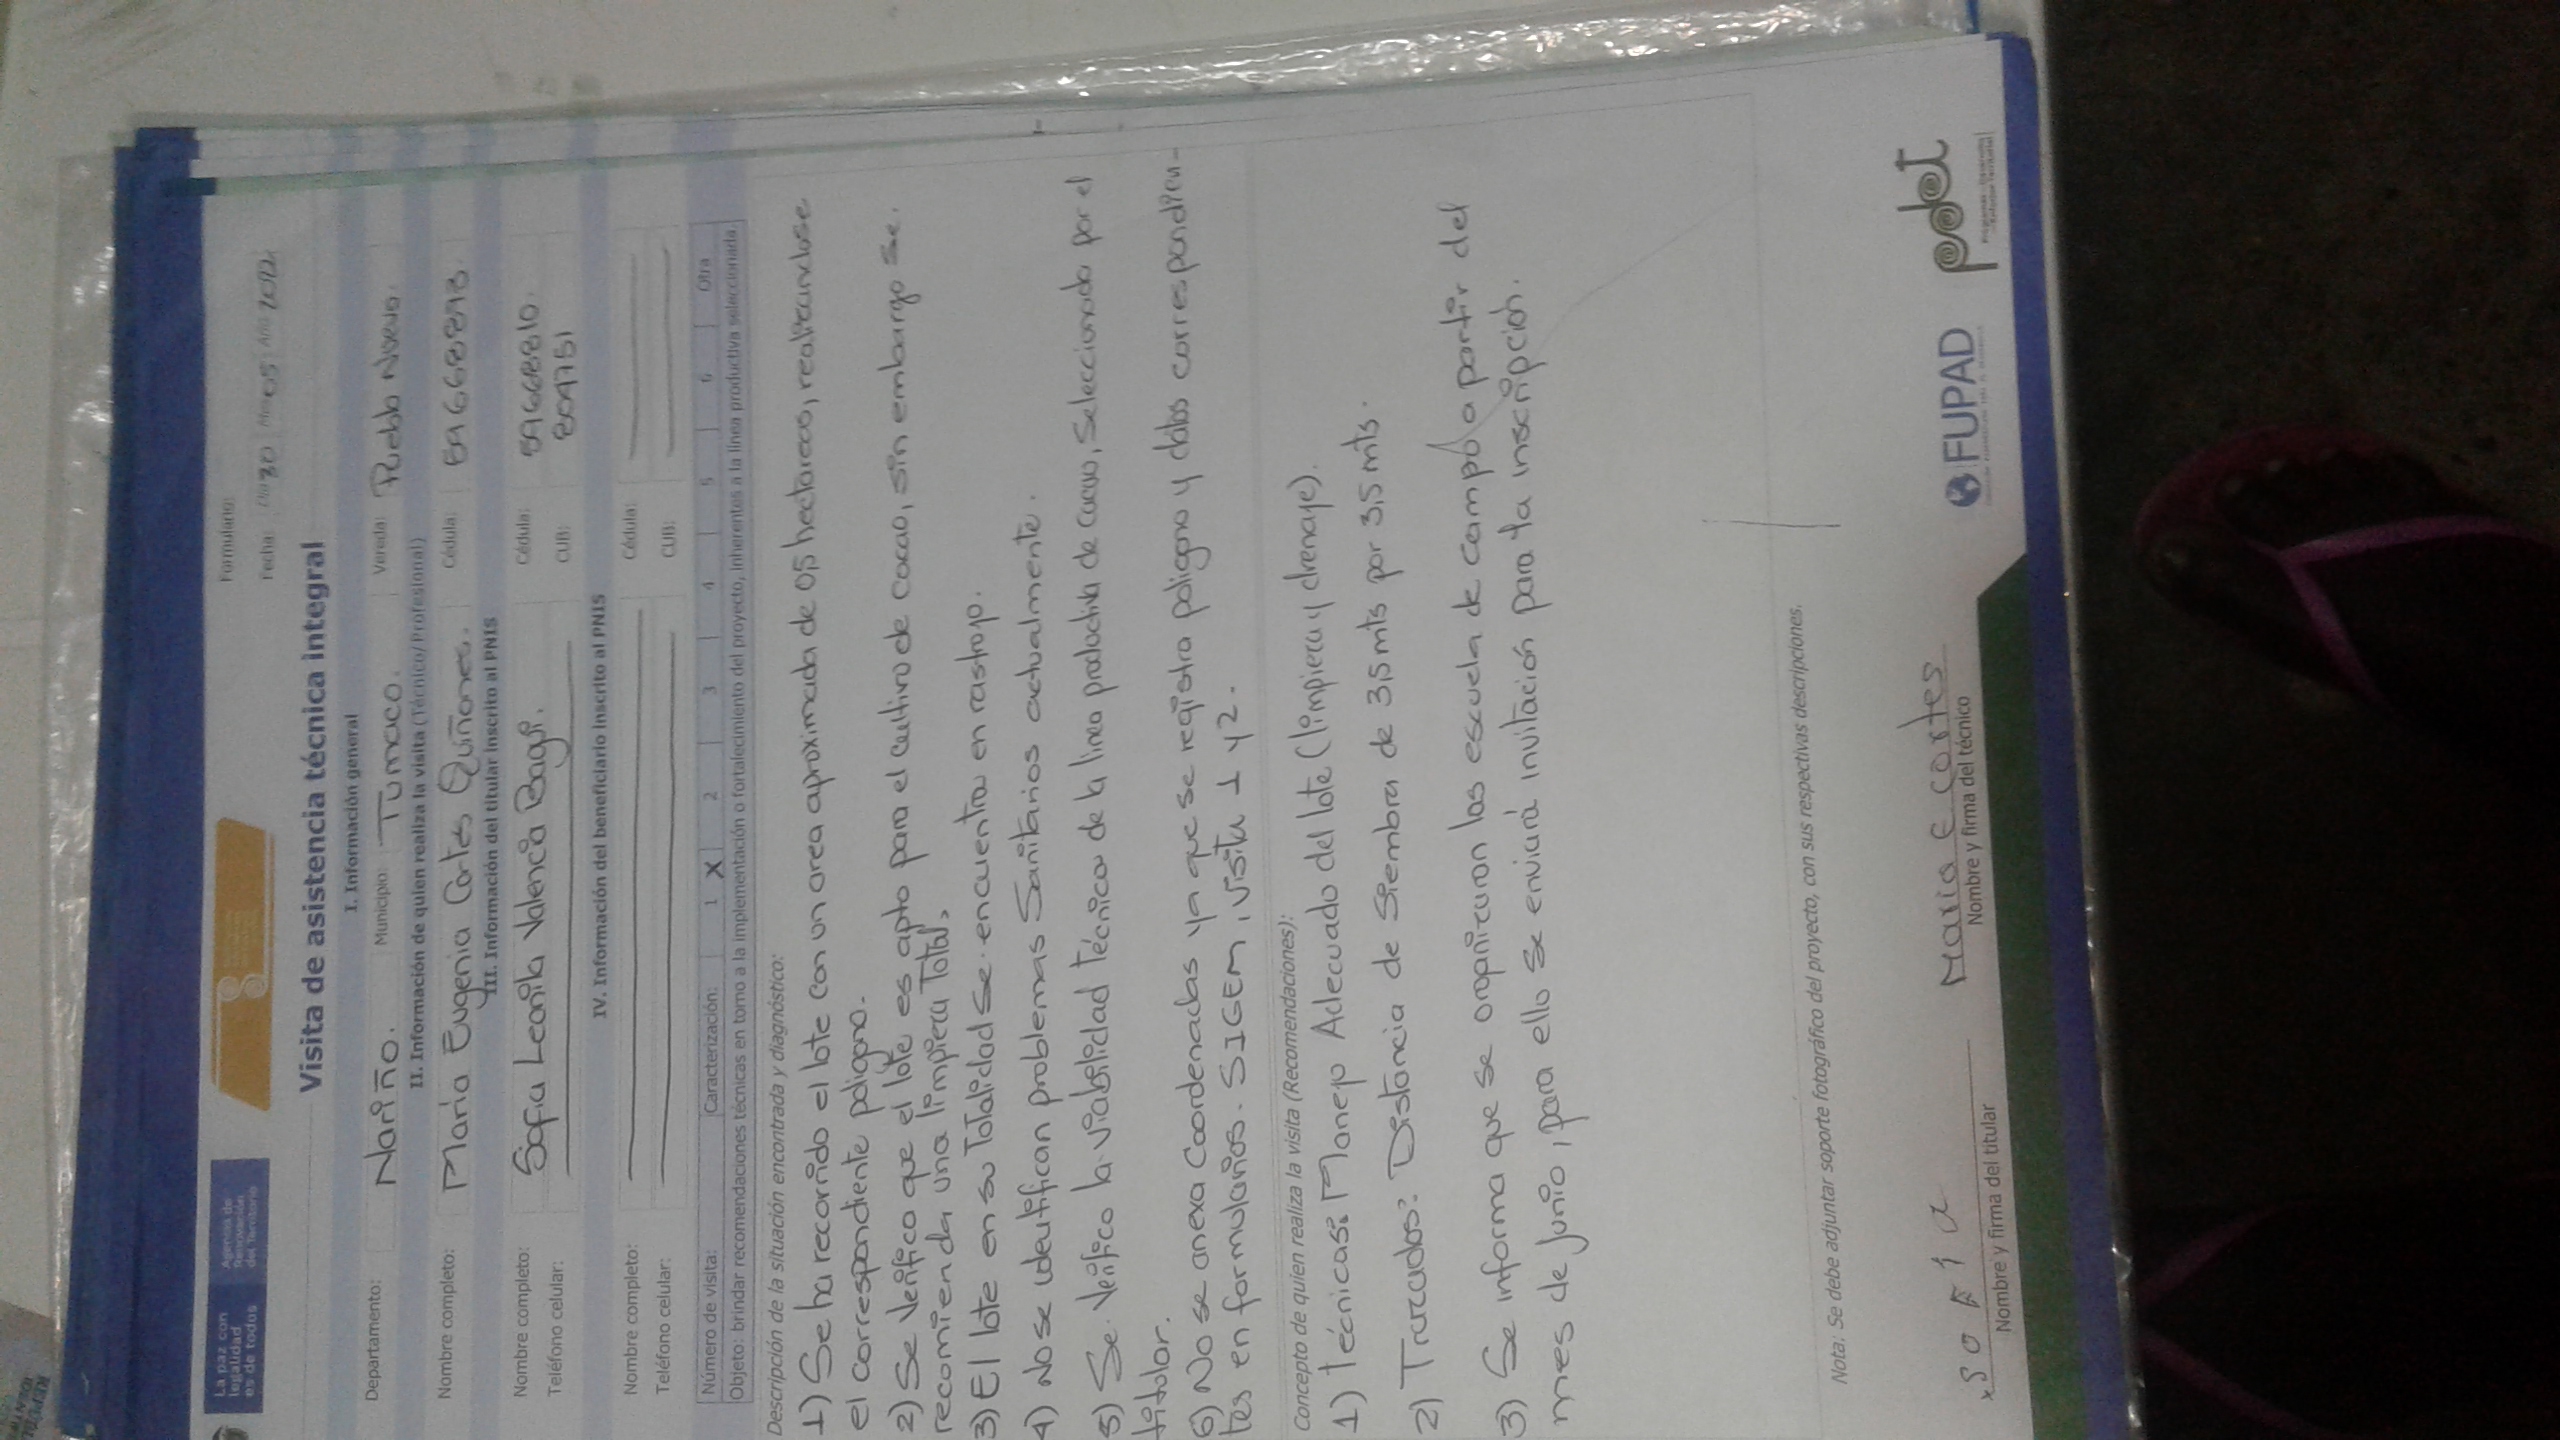 La paz con
legalidad
es de todos
Agencia de
Renovación
del Territorio
Formulario:
Fecha: Día 30 Mes 05 Año 2022
Visita de asistencia técnica integral
I. Información general
Departamento: Nariño. Municipio: Tumaco. Vereda: Pueblo Nuevo.
II. Información de quien realiza la visita (Técnico/Profesional)
Nombre completo: María Eugenia Cortes Quiñones. Cédula: 59668893.
III. Información del titular inscrito al PNIS
Nombre completo: Sofia Leonila Valencia Bagui. Cédula: 59668810.
Teléfono celular: CUB: 809751
IV. Información del beneficiario inscrito al PNIS
Nombre completo: Cédula:
Teléfono celular: CUB:
Número de visita: Caracterización: 1 X 2 3 4 5 6 Otra
Objeto: brindar recomendaciones técnicas en torno a la implementación o fortalecimiento del proyecto, inherentes a la línea productiva seleccionada.
Descripción de la situación encontrada y diagnóstico:
1) Se ha recorrido el lote con un area aproximada de 0,5 hectareas, realizandose
el correspondiente poligono.
2) Se verifico que el lote es apto para el cultivo de cacao, sin embargo se.
recomienda una limpieza Total,
3) El lote en su Totalidad se. encuentra en rastrojo.
4) No se identifican problemas Sanitarios actualmente.
5) Se. verifico la viabilidad Técnica de la linea productiva de cacao, Seleccionada por el
titular.
6) No se anexa Coordenadas ya que se registra poligono y datos correspondien-
tes en formularios. SIGEM, visita 1 y 2.
Concepto de quien realiza la visita (Recomendaciones):
1) Técnicas: Manejo Adecuado del lote (limpieza y drenaje).
2) Trazados: Distancia de Siembra de 3,5 mts por 3,5 mts.
3) Se informa que se organizaran las escuela de campo a partir del
mes de Junio, para ello se enviará invitación para la inscripción.
Nota: Se debe adjuntar soporte fotográfico del proyecto, con sus respectivas descripciones.
Maria E Cortes
Nombre y firma del titular Nombre y firma del técnico
FUPAD
pdet